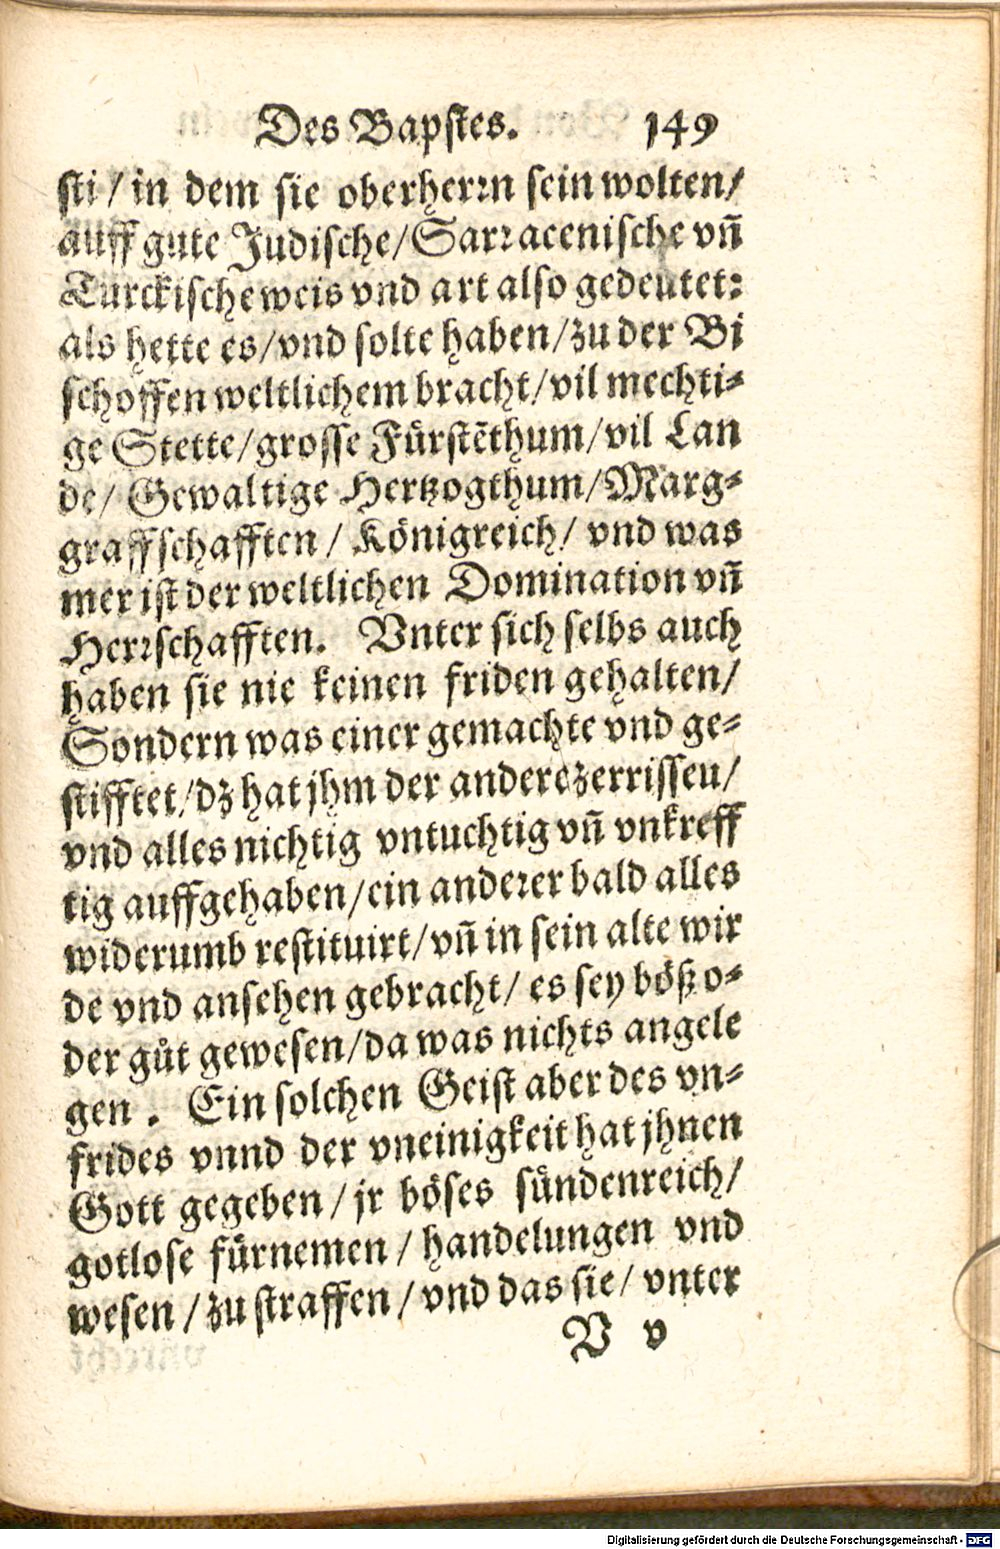 Des Bapstes. 149
sti / in dem sie oberherrn sein wolten/
auff gute Judische/Sarracenische vñ
Turckische weis vnd art also gedeutet:
als hette es/vnd solte haben/zu der Bi
schoffen weltlichem bracht/vil mechti-
ge Stette/grosse Fürstẽthum/vil Lan
de/ Gewaltige Hertzogthum/Marg-
graffschafften / Königreich/ vnd was
mer ist der weltlichen Domination vñ
Herrschafften. Vnter sich selbs auch
haben sie nie keinen friden gehalten/
Sondern was einer gemachte vnd ge-
stifftet/dz hat jhm der andere zerrissen/
vnd alles nichtig vntuchtig vñ vnkreff
tig auffgehaben/ein anderer bald alles
widerumb restituirt/vñ in sein alte wir
de vnd ansehen gebracht/ es sey böß o-
der gůt gewesen/da was nichts angele
gen . Ein solchen Geist aber des vn-
frides vnnd der vneinigkeit hat jhnen
Gott gegeben/ jr böses sündenreich/
gotlose fürnemen / handelungen vnd
wesen / zu straffen / vnd das sie/ vnter
V v
Digitalisierung gefördert durch die Deutsche Forschungsgemeinschaft - DFG